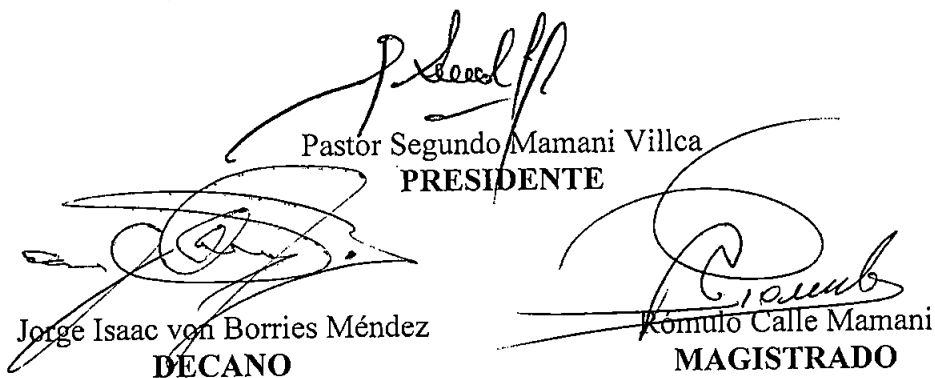 Pastor Segundo Mamani Villca
PRESIDENTE
Jorge Isaac von Borries Méndez
DECANO
Rómulo Calle Mamani
MAGISTRADO